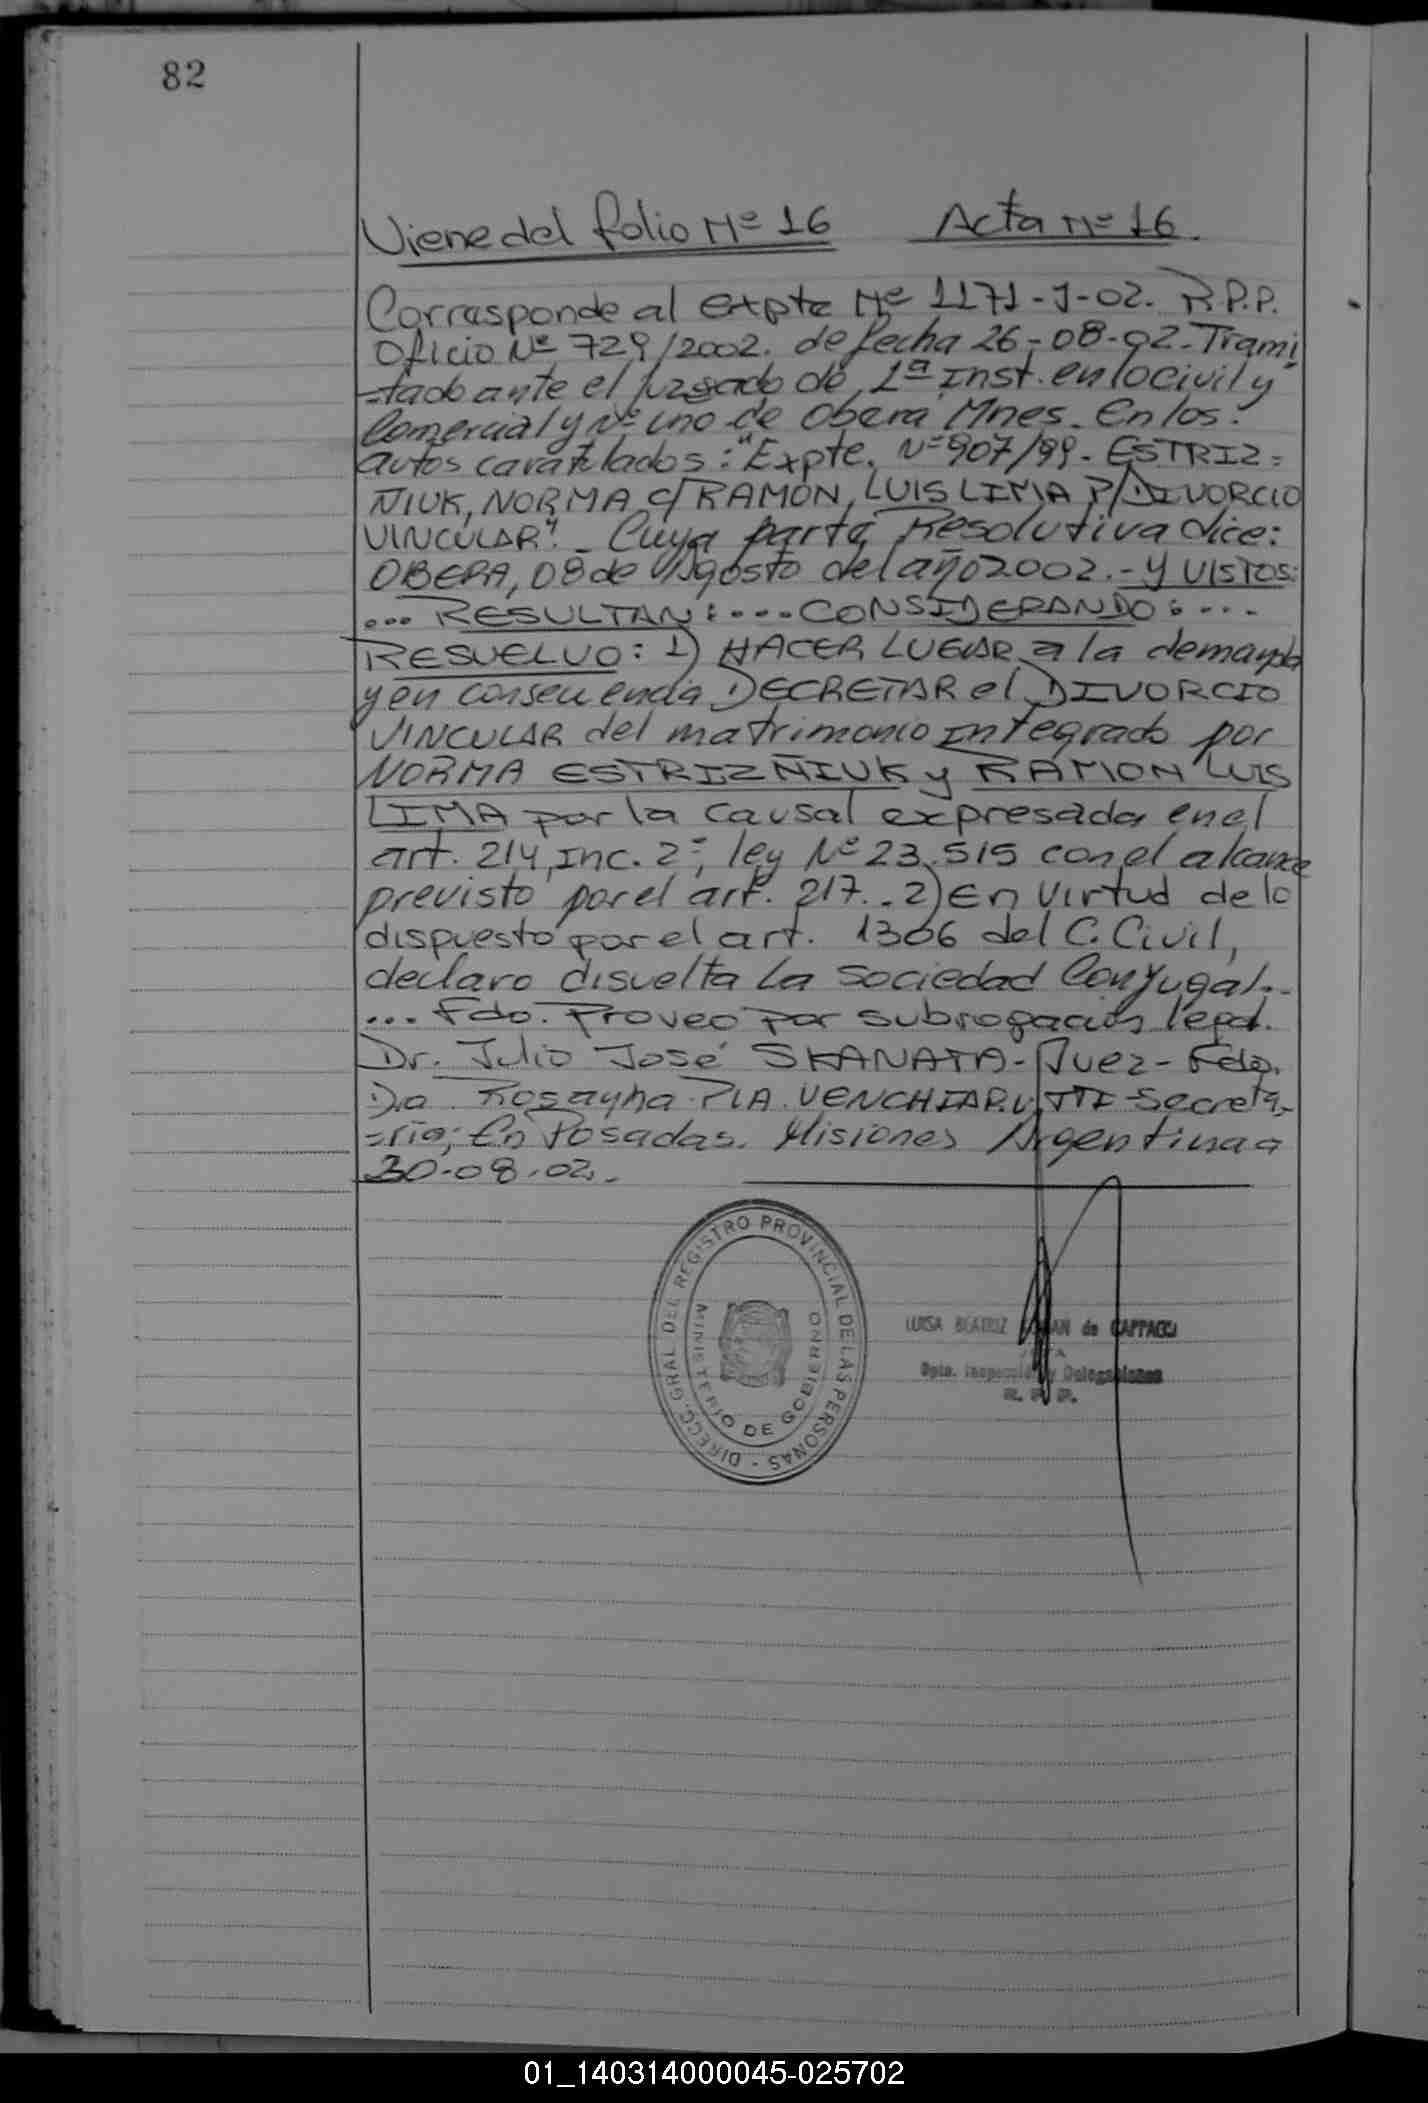 82
Viene del folio Nº 16 Acta Nº 16.
Corresponde al expte Nº 1171-J-02. R.P.P.
Oficio Nº 729/2002. de fecha 26-08-02. Trami
=tado ante el Juzgado de 1ª Inst. en lo civil y
Comercial y Nº uno de Obera Mnes. En los
autos caratulados: "Expte. Nº 907/99 - ESTRIZ=
ÑIUK, NORMA c/ RAMON, LUIS LIMA P/ DIVORCIO
VINCULAR". Cuya parte Resolutiva dice:
OBERA, 08 de Agosto del año 2002.- Y VISTOS:
... RESULTAN: ... CONSIDERANDO: ...
RESUELVO: 1) HACER LUGAR a la demanda
y en consecuencia DECRETAR el DIVORCIO
VINCULAR del matrimonio integrado por
NORMA ESTRIZÑIUK y RAMON LUIS
LIMA por la causal expresada en el
art. 214, Inc. 2º, ley Nº 23.515 con el alcance
previsto por el art. 217.. 2) En virtud de lo
dispuesto por el art. 1306 del C. Civil,
declaro disuelta la sociedad Conyugal.-
... Fdo. Proveo por subrogación legal.
Dr. Julio José SKANATA - Juez - Fdo.
Dra. PIA VENCHIARUTTI - Secreta-
=ria; En Posadas. Misiones Argentina a
30-08-02.
DIRECC. GRAL DEL REGISTRO PROVINCIAL DE LAS PERSONAS -
MINISTERIO DE GOBIERNO
LUISA BEATRIZ de CAPPACCI
Dpto. Inspección y Delegaciones
R. P. P.
01_140314000045-025702